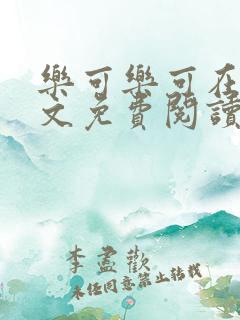 樂可樂可在
文免費閱讀
李盡歡
未经同意禁止转载